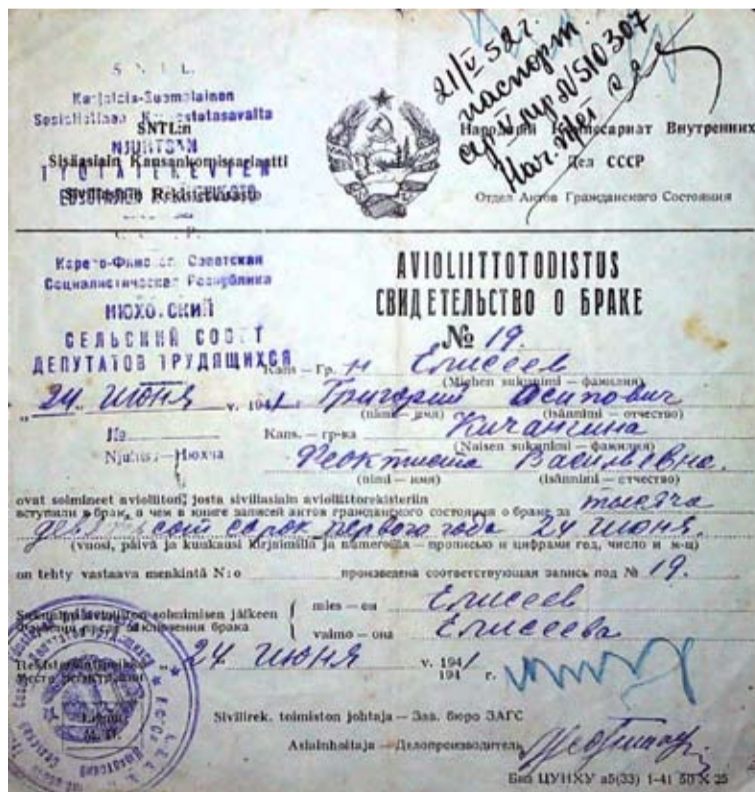 S. N. T. L.
Karjalais-Suomalainen
Sosialistinen Neuvostotasavalta
NJUHTSAN
TYÖTÄTEKEVIEN
EDUSTAJIEN
SNTL:n
Sisäasiain Kansankomissariaatti
Siviiliasiain Rekisteriosasto
21/V 52 г.
паспорт
сер V пр N 510307
Нач.
Народный Комиссариат Внутренних
Дел СССР
Отдел Актов Гражданского Состояния
С. С. С. Р.
Карело-Финская Советская
Социалистическая Республика
НЮХЧСКИЙ
СЕЛЬСКИЙ СОВЕТ
ДЕПУТАТОВ ТРУДЯЩИХСЯ
AVIOLIITTOTODISTUS
СВИДЕТЕЛЬСТВО О БРАКЕ
№ 19.
Kans — Гр. н Елисеев
(Miehen sukunimi — фамилия)
„24„ июня v. 1941 Григорий Осипович
(nimi — имя) (isännimi — отчество)
№ Kans. — гр-ка Кичангина
(Naisen sukunimi — фамилия)
Njuhtsa — Нюхча Феоктиста Васильевна.
(nimi — имя) (isännimi — отчество)
ovat solmineet avioliiton, josta siviiliasiain avioliittorekisteriin
вступили в брак, о чем в книге записей актов гражданского состояния о браке за тысяча
девятьсот сорок первого года 24 июня.
(vuosi, päivä ja kuukausi kirjaimilla ja numeroilla — прописью и цифрами год, число и м-ц)
on tehty vastaava merkintä N:o произведена соответствующая запись под № 19.
Sukunimi avioliiton solmimisen jälkeen mies — он Елисеев
Фамилия после заключения брака vaimo — она Елисеева
Rekisteröimispaikka „24 июня v. 1941
Место регистрации 194 г.
Siviilirek. toimiston johtaja — Зав. бюро ЗАГС
Asiainhoitaja — Делопроизводитель
Бланк ЦУНХУ а5(33) 1-41 50 X 25